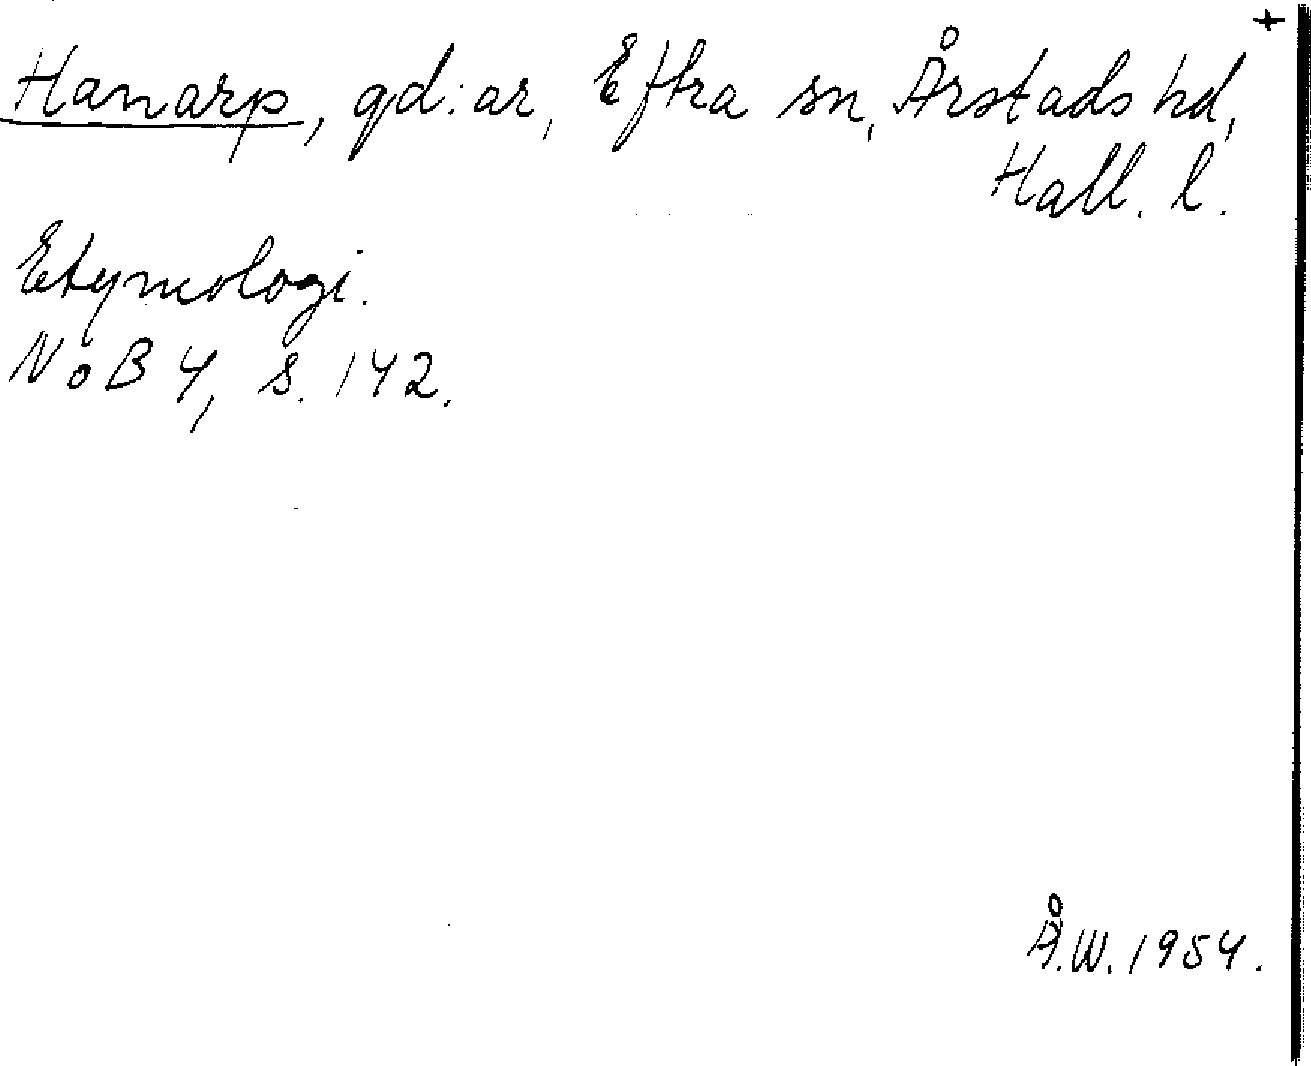 +
Hanarp, gd:ar, Eftra sn, Årstads hd,
Hall. l.
Etymologi.
NoB 4, s. 142.
Å.W. 1954.